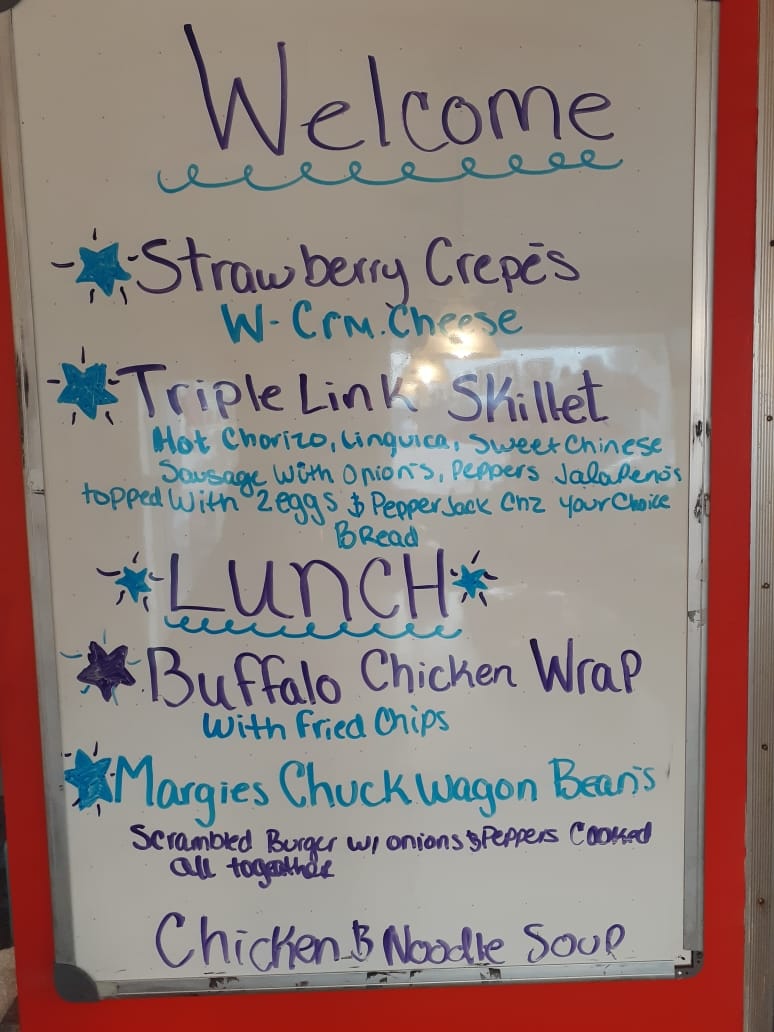 Welcome
Strawberry Crepe's
W- Crm. Cheese
Triple Link Skillet
Hot Chorizo, Linguica, Sweet Chinese
Sausage with Onion's, Peppers Jalapeno's
topped with 2 eggs & Pepper Jack Chz your Choice
Bread
LUNCH
Buffalo Chicken Wrap
with Fried Chips
Margies Chuck Wagon Bean's
Scrambled Burger w/ onions & Peppers Cooked
all together
Chicken & Noodle Soup